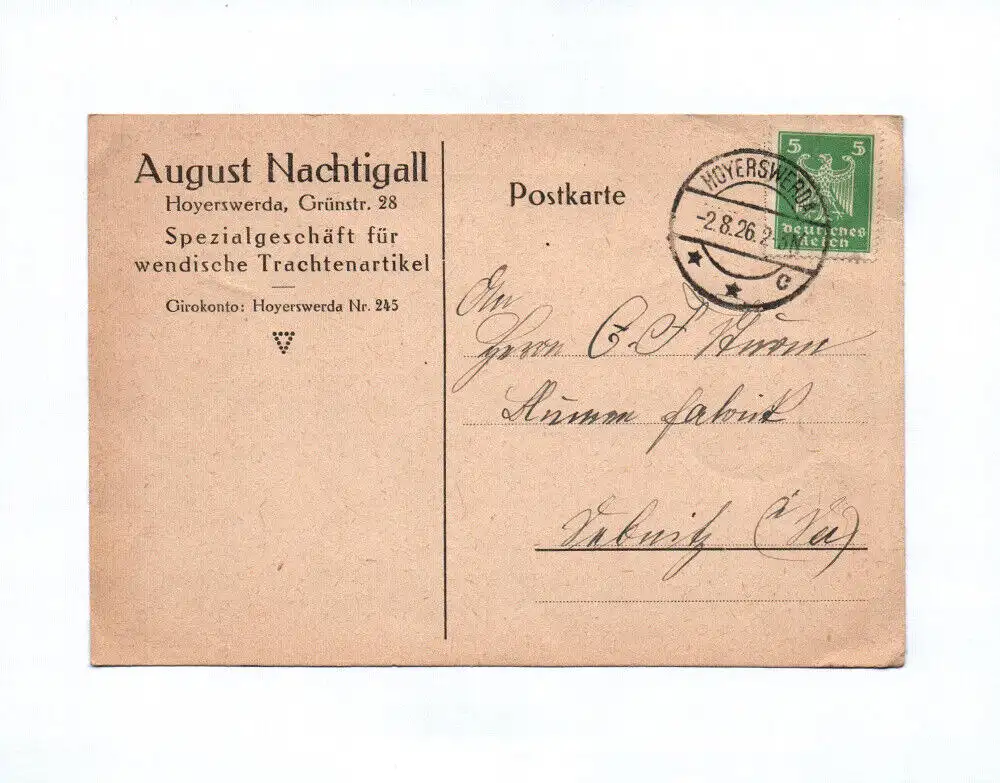 August Nachtigall
Hoyerswerda, Grünstr. 28
Spezialgeschäft für
wendische Trachtenartikel
Girokonto: Hoyerswerda Nr. 245
Postkarte
5 5
Deutsches
Reich
HOYERSWERDA
-2.8.26.2-
c
An
Herrn C. F. Sturm
Blumenfabrik
Sebnitz (Sa)